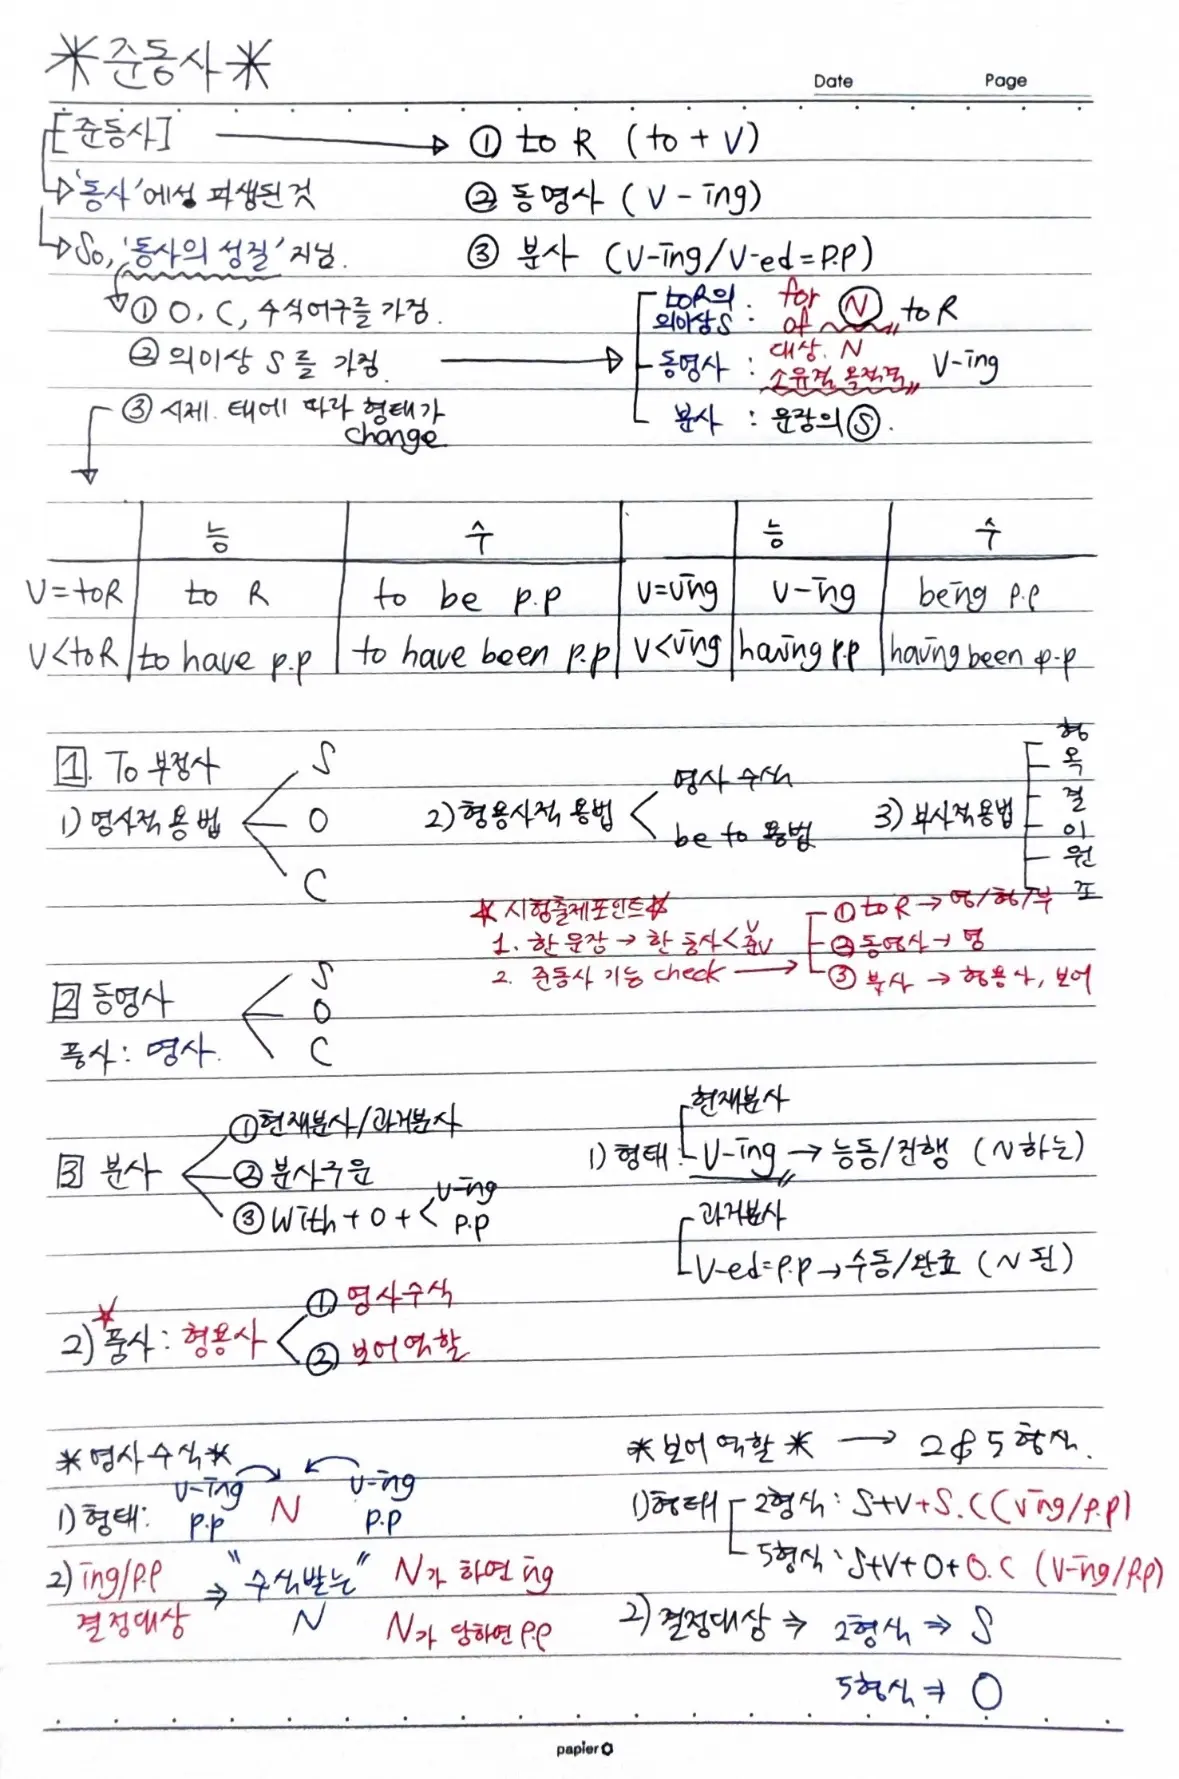 *준동사*
Date Page
[준동사] → ① to R (to + V)
→ '동사'에서 파생된 것 ② 동명사 (V-ing)
→ So, '동사의 성질' 지님. ③ 분사 (V-ing/V-ed=P.P)
① O, C, 수식어구를 가짐.
② 의미상 S를 가짐. →
toR의 의미상S : for of N to R
동명사 : 대상. N 소유격, 목적격 V-ing
분사 : 문장의 S.
③ 시제. 태에 따라 형태가 change
능 수 능 수
V=toR to R to be p.p V=Ving V-ing being p.p
V<toR to have p.p to have been p.p V<Ving having p.p having been p.p
1. To 부정사
1) 명사적 용법 S O C
2) 형용사적 용법 < 명사 수식 be to 용법
3) 부사적용법 형 목 결 이 원 조
*시험출제포인트*
1. 한 문장 → 한 동사 < V 준V
2. 준동사 기능 check →
① to R → 명/형/부
② 동명사 → 명
③ 분사 → 형용사, 보어
2 동명사 S O C
품사: 명사.
3 분사
① 현재분사/과거분사
② 분사구문
③ With + O + < V-ing p.p
1) 형태:
현재분사
V-ing → 능동/진행 (N하는)
과거분사
V-ed=P.P → 수동/완료 (N 된)
2) *품사: 형용사 < ① 명사수식
② 보어 역할
*명사 수식*
1) 형태: V-ing p.p N V-ing p.p
2) ing/p.p 결정대상 ⇒ "수식받는" N
N가 하면 ing
N가 당하면 p.p
*보어 역할* → 2 & 5 형식.
1) 형태
2형식: S+V+S.C (Ving/p.p)
5형식: S+V+O+O.C (V-ing/p.p)
2) 결정대상 ⇒ 2형식 ⇒ S
5형식 ⇒ O
papier